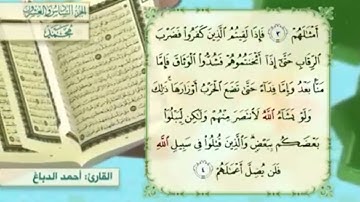 الجزء السادس والعشرون
أَمْثَالَهُمْ ﴿٣﴾ فَإِذَا لَقِيتُمُ الَّذِينَ كَفَرُوا فَضَرْبَ
الرِّقَابِ حَتَّىٰ إِذَا أَثْخَنتُمُوهُمْ فَشُدُّوا الْوَثَاقَ فَإِمَّا
مَنًّا بَعْدُ وَإِمَّا فِدَاءً حَتَّىٰ تَضَعَ الْحَرْبُ أَوْزَارَهَا ذَٰلِكَ
وَلَوْ يَشَاءُ اللَّهُ لَانتَصَرَ مِنْهُمْ وَلَٰكِن لِّيَبْلُوَا
بَعْضَكُم بِبَعْضٍ وَالَّذِينَ قُتِلُوا فِي سَبِيلِ اللَّهِ
فَلَن يُضِلَّ أَعْمَالَهُمْ ﴿٤﴾
القارئ: أحمد الدباغ